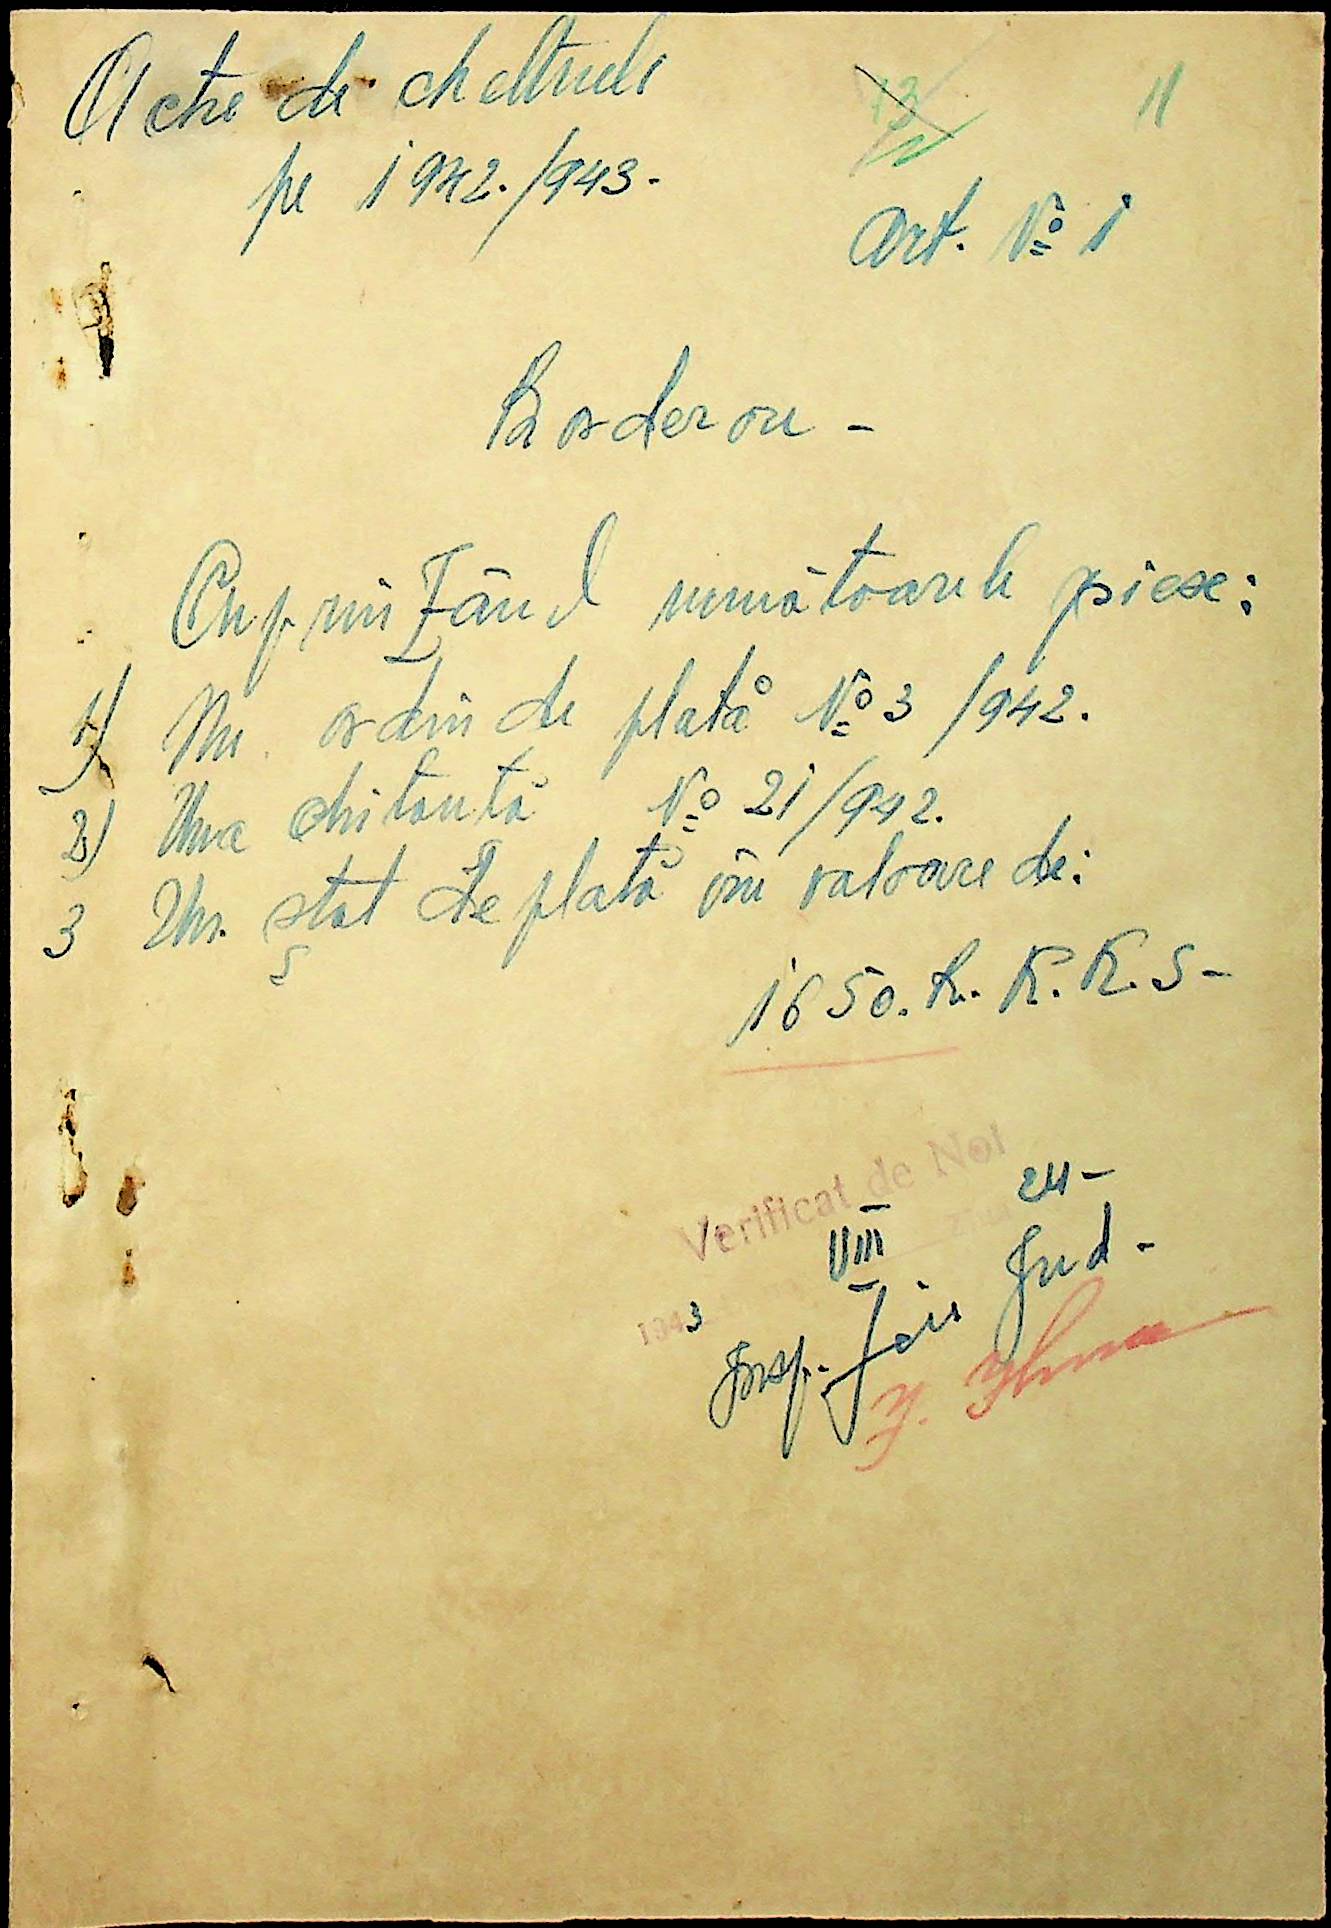 Acte de cheltueli
pe 1942./943.
13
11
Art. No 1
Borderou -
Cuprinzând urmãtoarele piese:
1) Un ordin de platã No 3 /942.
2) Una chitantã No 21/942.
3 Un. stat de platã în valoare de:
1650. R. K. K. S-
Verificat de Noi
VIII 24-
1943
Insp. fin Jud-